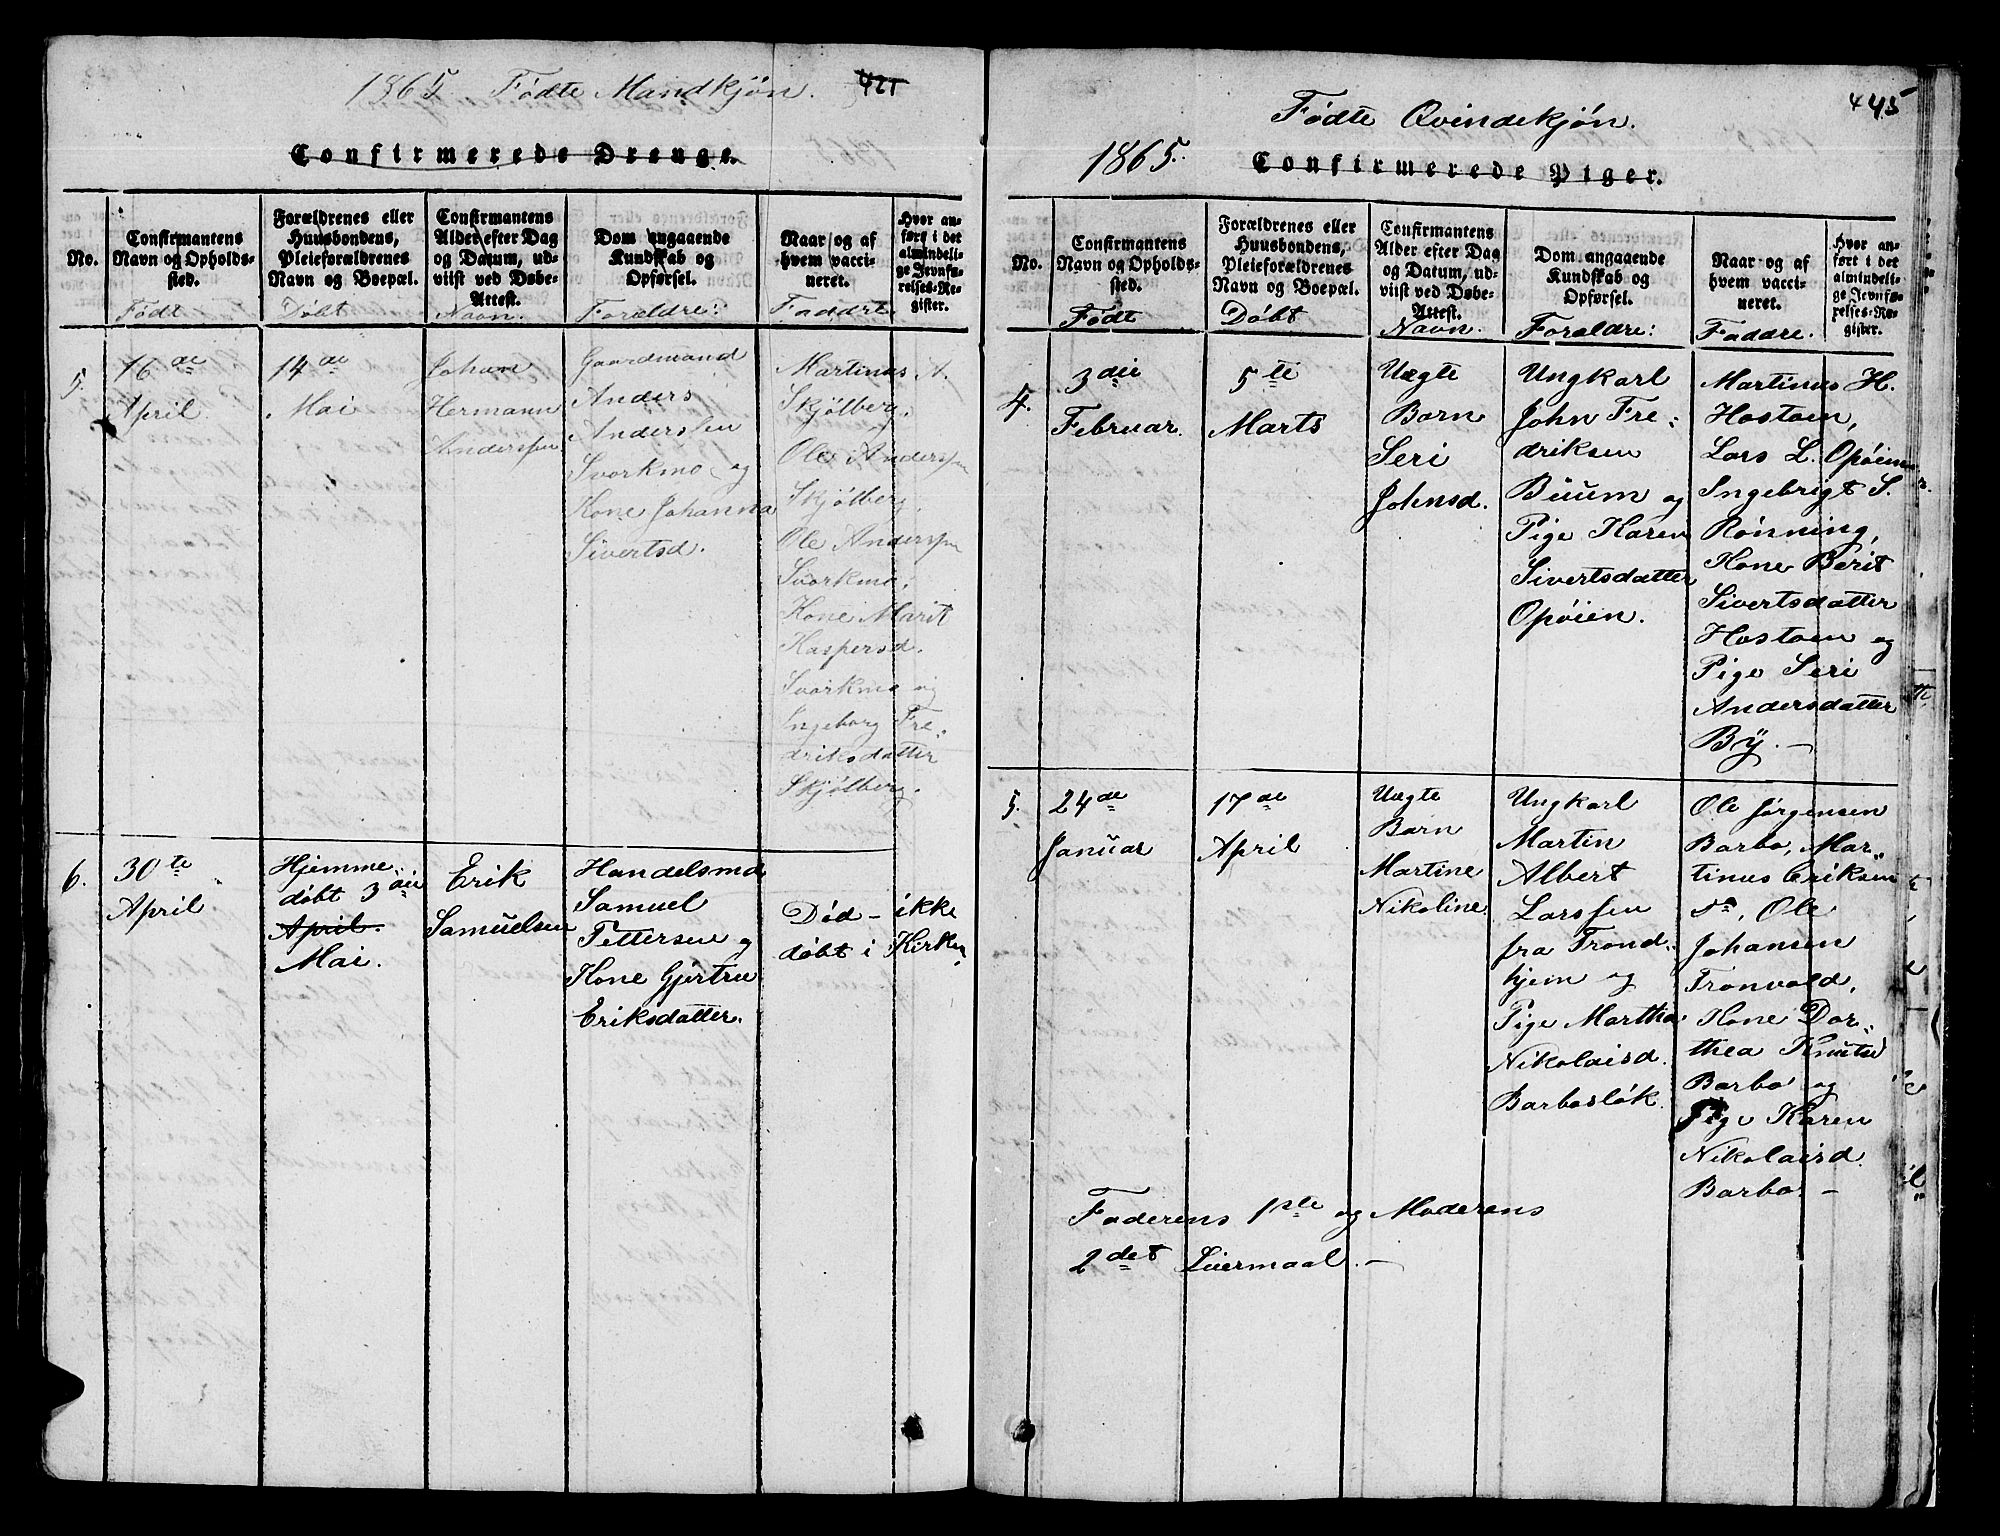 1865. Fødte Mandkjøn. 421
Confirmerede Drenge.
No.
Confirmantens
Navn og Opholds-
sted.
Født
Forældrenes eller
Huusbondens,
Pleieforældrenes
Navn og Boepæl.
Døbt
Confirmantens
Alder efter Dag
og Datum, ud-
viist ved Døbe-
Attest.
Navn.
Dom angaaende
Kundskab og
Opførsel.
Forældre:
Naar og af
hvem vacci-
neret.
Faddre
Hvor an-
ført i det
almindeli-
ge Jevnfø-
relses-Re-
gister.
5.
16de
April.
14de
Mai
Johan
Hermann
Anderssen
Gaardmand
Anders
Anderssen
Svorkmo og
Kone Johanna
Sivertsd.
Martinus A.
Skjølberg,
Ole Anderssen
Skjølberg,
Ole Anderssen
Svorkmo,
Kone Marit
Kaspersd.
Svorkmo og
Ingeborg Fre-
driksdatter
Skjølberg.
6.
30te
April
Hjemme-
døbt 3die
April.
Mai.
Erik
Samuelsen
Handelsmd
Samuel
Pettersen og
Kone Gjertru
Eriksdatter.
Død - ikke
døbt i Kirken
445
Fødte Qvindekjøn.
1865.
Confirmerede Piger.
No.
Confirmantens
Navn og Opholds-
sted.
Født
Forældrenes eller
Huusbondens,
Pleieforældrenes
Navn og Boepæl.
Døbt
Confirmantens
Alder efter Dag
og Datum, ud-
viist ved Døbe-
Attest.
Navn.
Dom angaaende
Kundskab og
Opførsel.
Forældre:
Naar og af
hvem vacci-
neret.
Faddre.
Hvor an-
ført i det
almindeli-
ge Jevnfø-
relses-Re-
gister.
4.
3die
Februar.
5te
Marts
Uægte
Barn
Seri
Johnsd.
Ungkarl
John Fre-
driksen
Buum og
Pige Karen
Sivertsdatter
Opøien.
Martinus H.
Hostoen,
Lars L. Opøien
Ingebrigt S.
Rønning,
Kone Berit
Sivertsdatter
Hostoen og
Pige Seri
Andersdatter
By. -
5.
24de
Januar
17de
April
Uægte
Barn
Martine
Nikoline
Ungkarl
Martin
Albert
Larssen
fra Trond-
hjem og
Pige Martha
Nikolaisd.
Barbosløk.
Ole Jørgensen
Barbo, Mar-
tinus Eriksen
sd, Ole
Johansen
Tronvold,
Kone Dor-
thea Knutsd
Barbo og
Pige Karen
Nikolaisd.
Barbo. -
Faderens 1ste og Moderens
2det Leiermaal. -